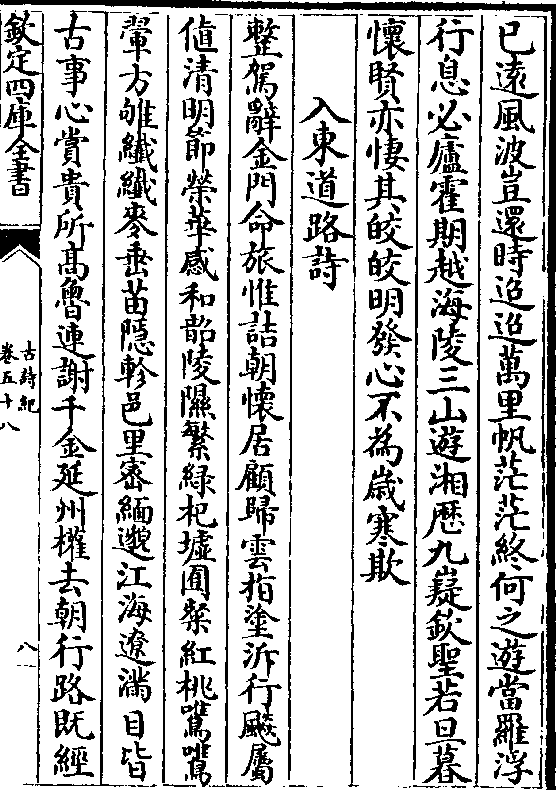 已逺風波豈還時迢迢萬里帆茫茫終何之遊當羅浮
行息必廬霍期越海陵三山遊湘歷九嶷欽聖若旦暮
懷賢亦悽其皎皎明發心不為嵗寒欺
入東道路詩
整駕辭金門命旅惟詰朝懷居顧歸雲指塗泝行飈屬
值清明節榮華感和韶陵隰繁緑杞墟囿粲紅桃鷕鷕
翬方雊纖纖麥垂苗隱軫邑里宻緬邈江海遼滿目皆
古事心賞貴所髙魯連謝千金延州權去朝行路既經
欽定四庫全書
古詩紀
卷五十八
八